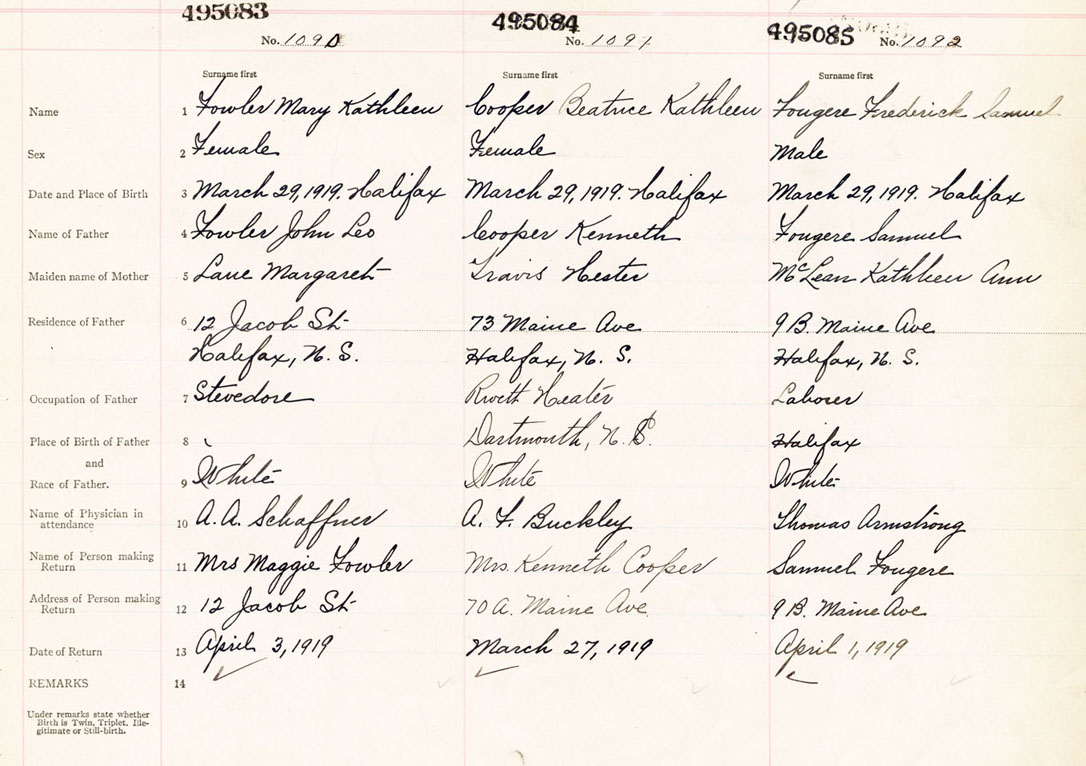 495083
495084
495085
No. 1090
No. 1091
No. 1092
Surname first
Surname first
Surname first
Name 1 Fowler Mary Kathleen Cooper Beatrice Kathleen Fougere Frederick Samuel
Sex 2 Female Female Male
Date and Place of Birth 3 March 29, 1919. Halifax March 29, 1919. Halifax March 29, 1919. Halifax
Name of Father 4 Fowler John Leo Cooper Kenneth Fougere Samuel
Maiden name of Mother 5 Lane Margaret Travis Hester McLean Kathleen Ann
Residence of Father 6 12 Jacob St. 73 Maine Ave 9 B. Maine Ave
Halifax, N. S. Halifax, N. S. Halifax, N. S.
Occupation of Father 7 Stevedore Heater Laborer
Place of Birth of Father 8 Dartmouth, N. S. Halifax
and
Race of Father. 9 White White White
Name of Physician in
attendance 10 A. A. Schaffner A. F. Buckley Thomas Armstrong
Name of Person making
Return 11 Mrs Maggie Fowler Mrs. Kenneth Cooper Samuel Fougere
Address of Person making
Return 12 12 Jacob St. 70 A. Maine Ave 9 B. Maine Ave
Date of Return 13 April 3, 1919 March 27, 1919 April 1, 1919
REMARKS 14
Under remarks state whether
Birth is Twin, Triplet, Ille-
gitimate or Still-birth.